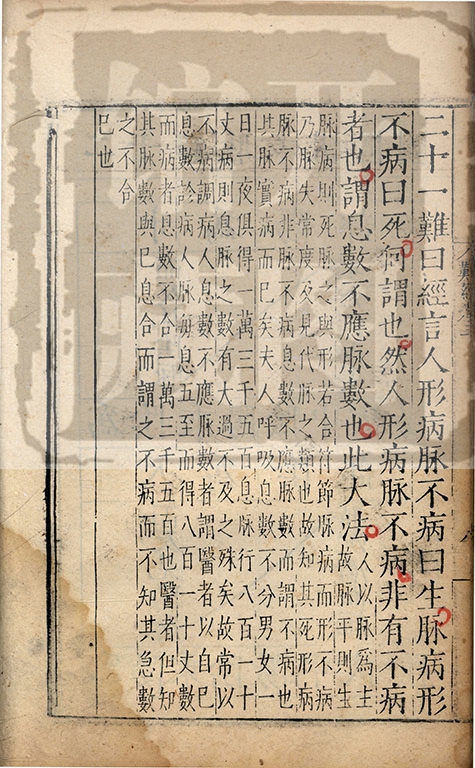 二十一難曰經言人形病脉不病曰生脉病形
不病曰死何謂也然人形病脉不病非有不病
者也謂息數不應脉數也此大法
人以脉爲主
故脉平則生
脉病則死脉之與形若合符節脉病而形不病
乃脉失常度及見代脉之類也故知其死形病
脉不病非脉不病息數不應脉數而謂不病也
其脉實病而巳矣夫人呼吸息數不分男女一
日一夜俱得一萬三千五百息脉行八百一十
丈病則息脉之數有大過不及之殊矣故常以
不病調病人息數不應脉數者謂醫者以自巳
息數診病人脉每息五至而得八百一十丈數
而病者息數不合一萬三千五百也醫者但知
其脉數與巳息合而謂之不病而不知其急數
之不合
巳也